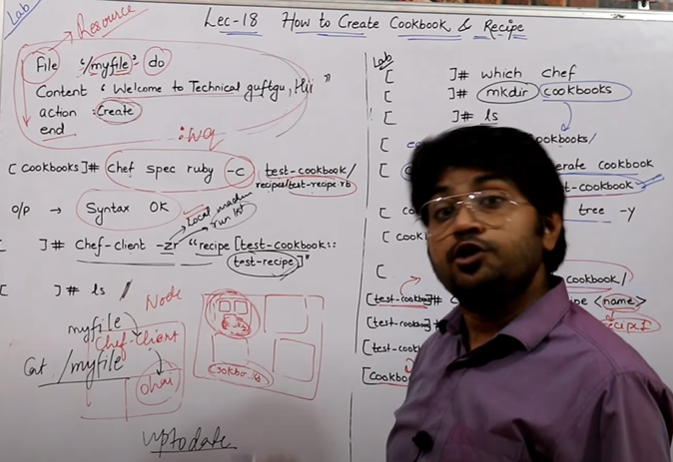 Lab
Lec-18 How to Create Cookbook & Recipe
Resource
File '/myfile' do
Content 'Welcome to Technical guftgu, Hii"
action :Create
end
:wq
[cookbooks]# Chef spec ruby -c test-cookbook/
recipes/test-recipe.rb
O/P → Syntax OK
Local machine
run list
[ ]# Chef-client -zr "recipe [test-cookbook::
test-recipe]"
[ ]# ls /
myfile
Cat /myfile
Node
Chef-Client
ohai
Cookbooks
uptodate
Lab
[ ]# which chef
[ ]# mkdir cookbooks
[ ]# ls
cookbooks/
cookbook
test-cookbook
tree -y
[cook
[
cookbook/
[test-cookbook]#
<name>
[test-cookbook]#
[test-cook
[cookbo